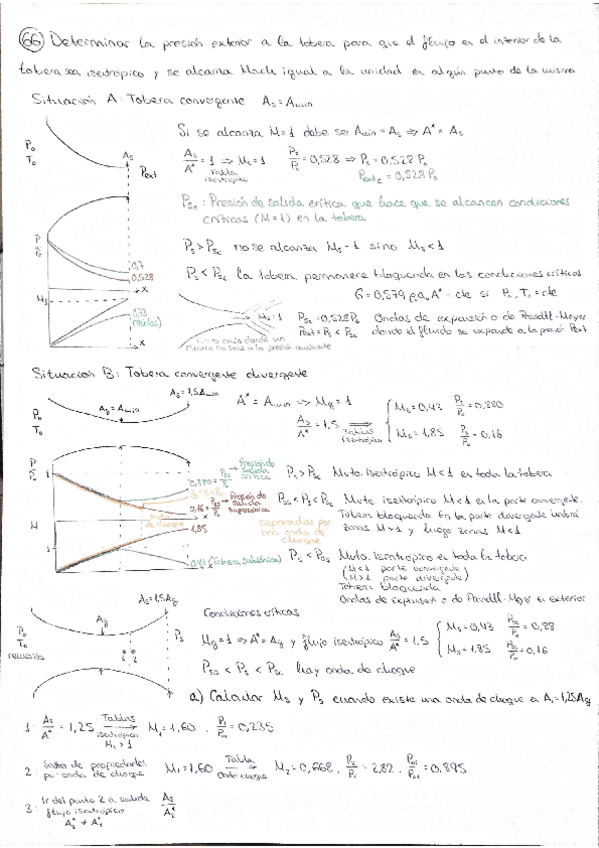 66 Determinar la presión exterior a la tobera para que el flujo en el interior de la
tobera sea isentrópico y se alcanza Mach igual a la unidad en algún punto de la misma
Situación A: Tobera convergente As = Amin
Si se alcanza M=1 debe ser Amin = As ⇒ A* = As
P₀
T₀
As
Pext
As/A* = 1 ⇒ Ms = 1 Ps/P₀ = 0,528 ⇒ Ps = 0,528 P₀
Tabla isentrópico
= 0,528 P₀
Psc : Presión de salida crítica que hace que se alcancen condiciones
críticas (M=1) en la tobera
Ps > Psc no se alcanza Ms = 1 sino Ms < 1
Ps < Psc la tobera permanece bloqueada en las condiciones críticas
P/P₀
0,7
0,528
x
G = 0,579 ρ₀ a₀ A* = cte si P₀, T₀ = cte
Ms
1
0,73
x
Ms = 1
Psc = 0,528 P₀ Ondas de expansión o de Prandtl-Meyer
Pext = Ps < Psc donde el fluido se expande a la presión Pext
Situación B: Tobera convergente divergente
P₀
T₀
Ag = Amin
As = 1,5 Amin
A* = Amin ⇒ Mg = 1
As/A* = 1,5 ⇒ Tablas isentrópico
Ms = 0,43 Ps/P₀ = 0,880
Ms = 1,85 Ps/P₀ = 0,16
P/P₀
1
0,880 = Psc/P₀ → Presión de salida crítica
0,16 = → Presión de salida supersónica
M
1
1,85
Separadas por una onda de choque
0,43 (Tobera subsónica)
Ps > Psc Mvto. isentrópico M<1 en toda la tobera
< Ps < Psc Mvto. isentrópico M<1 en la parte convergente.
Tobera bloqueada En la parte divergente habrá
zonas M>1 y luego zonas M<1
Mvto. isentrópico en toda la tobera
(M<1 parte convergente)
(M>1 parte divergente)
Tobera bloqueada
Ondas de expansión o de Prandtl-Meyer en exterior
As = 1,5 Ag
Ag
P₀
T₀
Ps
1 2
Condiciones críticas
Mg = 1 ⇒ A* = Ag y flujo isentrópico As/A* = 1,5
Ms = 0,43 Psc/P₀ = 0,88
Ms = 1,85 = 0,16
< Ps < Psc hay onda de choque
a) Calcular Ms y Ps cuando existe una onda de choque en A₁ = 1,25 Ag
1: /A* = 1,25 Tablas isentrópicas M₁ > 1 → M₁ = 1,60 , P₁/P₀ = 0,235
2: Salto de propiedades por onda de choque M₁ = 1,60 Tabla Onda choque → M₂ = 0,668 , P₂/P₁ = 2,82 , = 0,895
3: Ir del punto 2 a salida flujo isentrópico
A₂* ≠ A₁*
As/A₂*